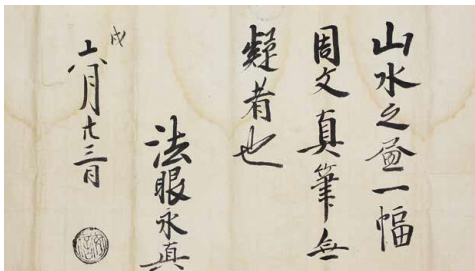 山水之畫一幅
周文真筆無
疑者也
法眼永真
戌
六月廿三日